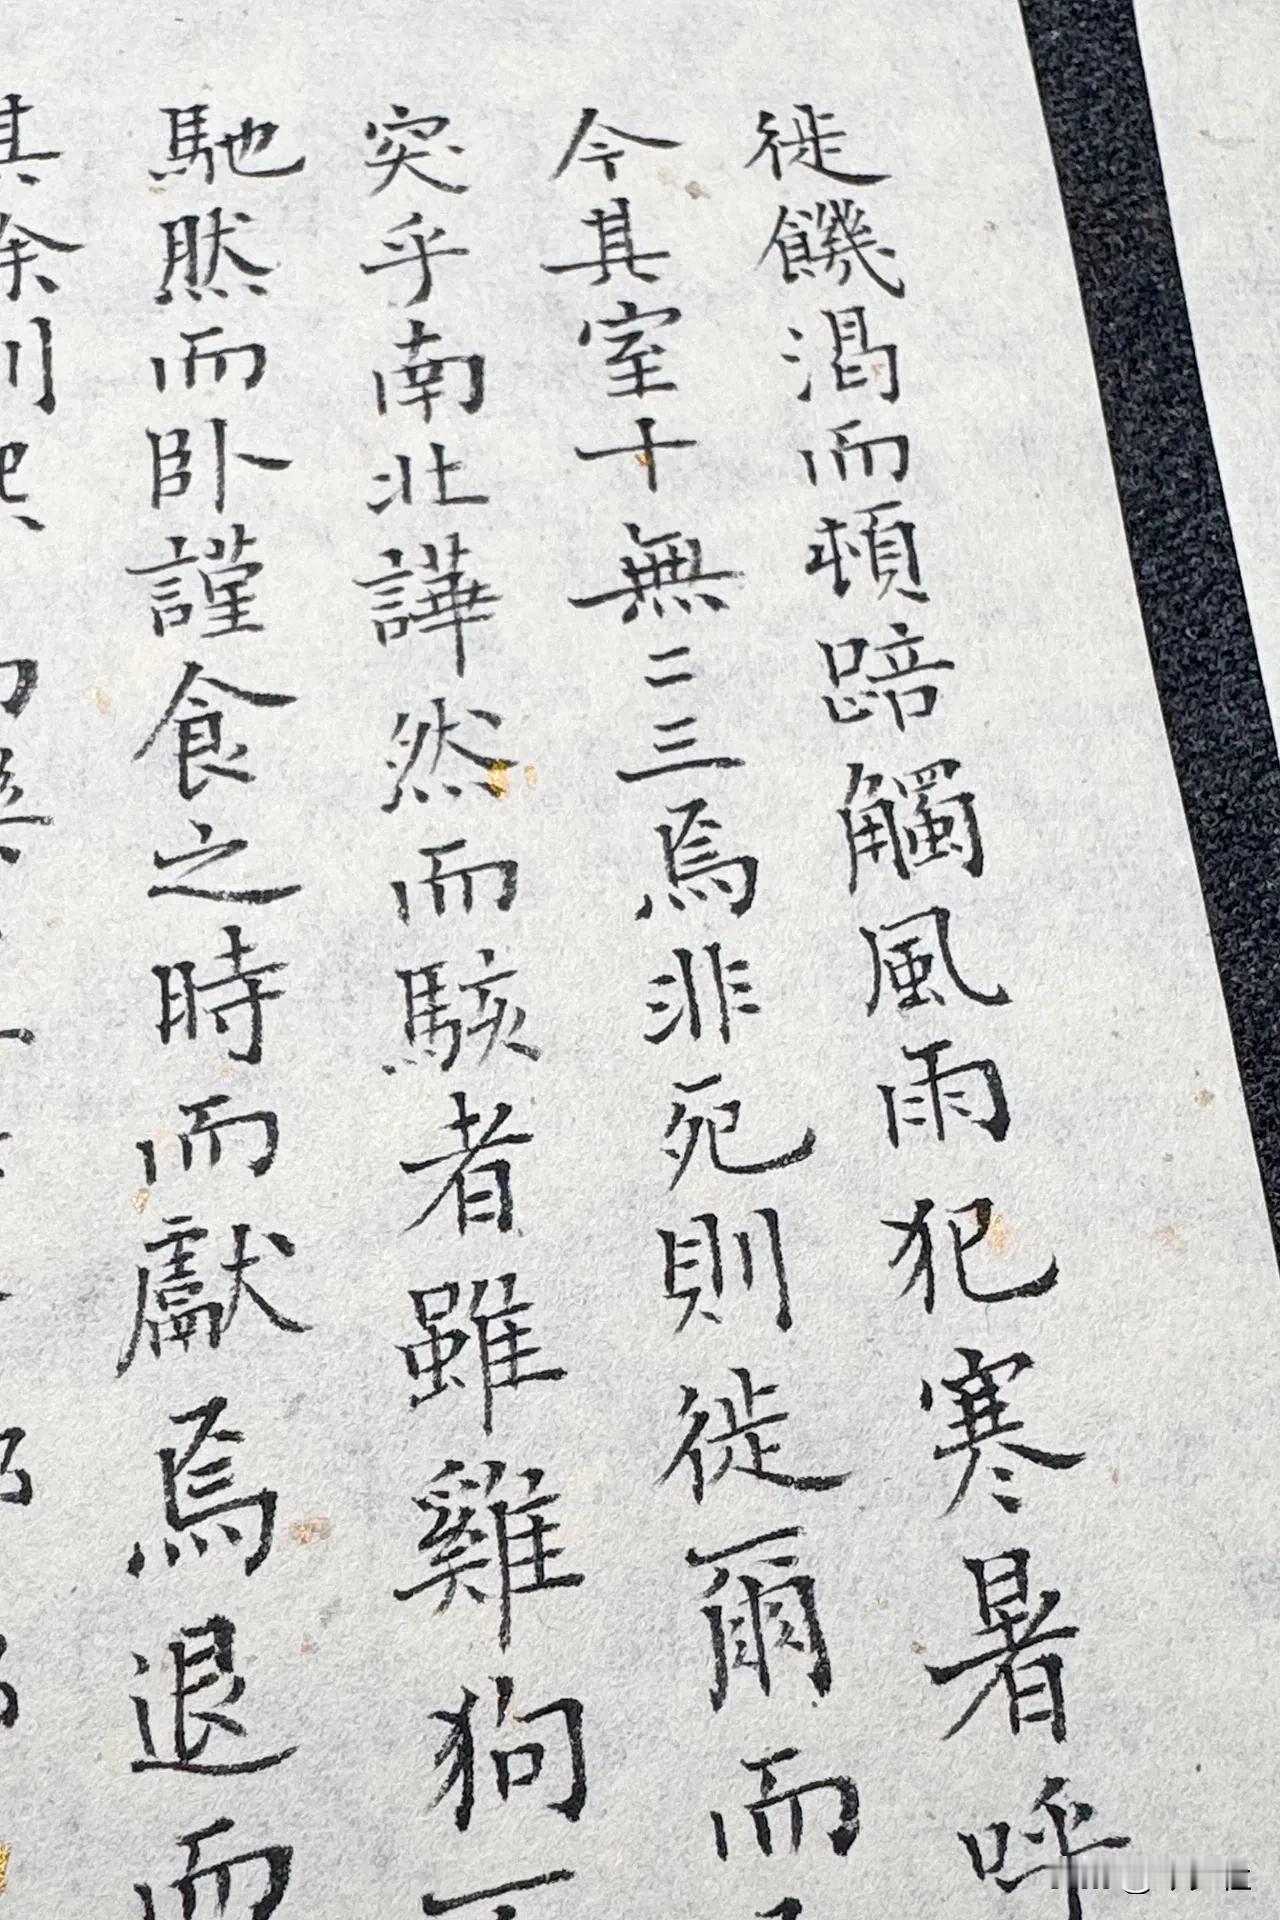 徙饑渴而頓踣觸風雨犯寒暑呼
今其室十無二三焉非死則徙爾而
突乎南北譁然而駭者雖雞狗
馳然而卧謹食之時而獻焉退而